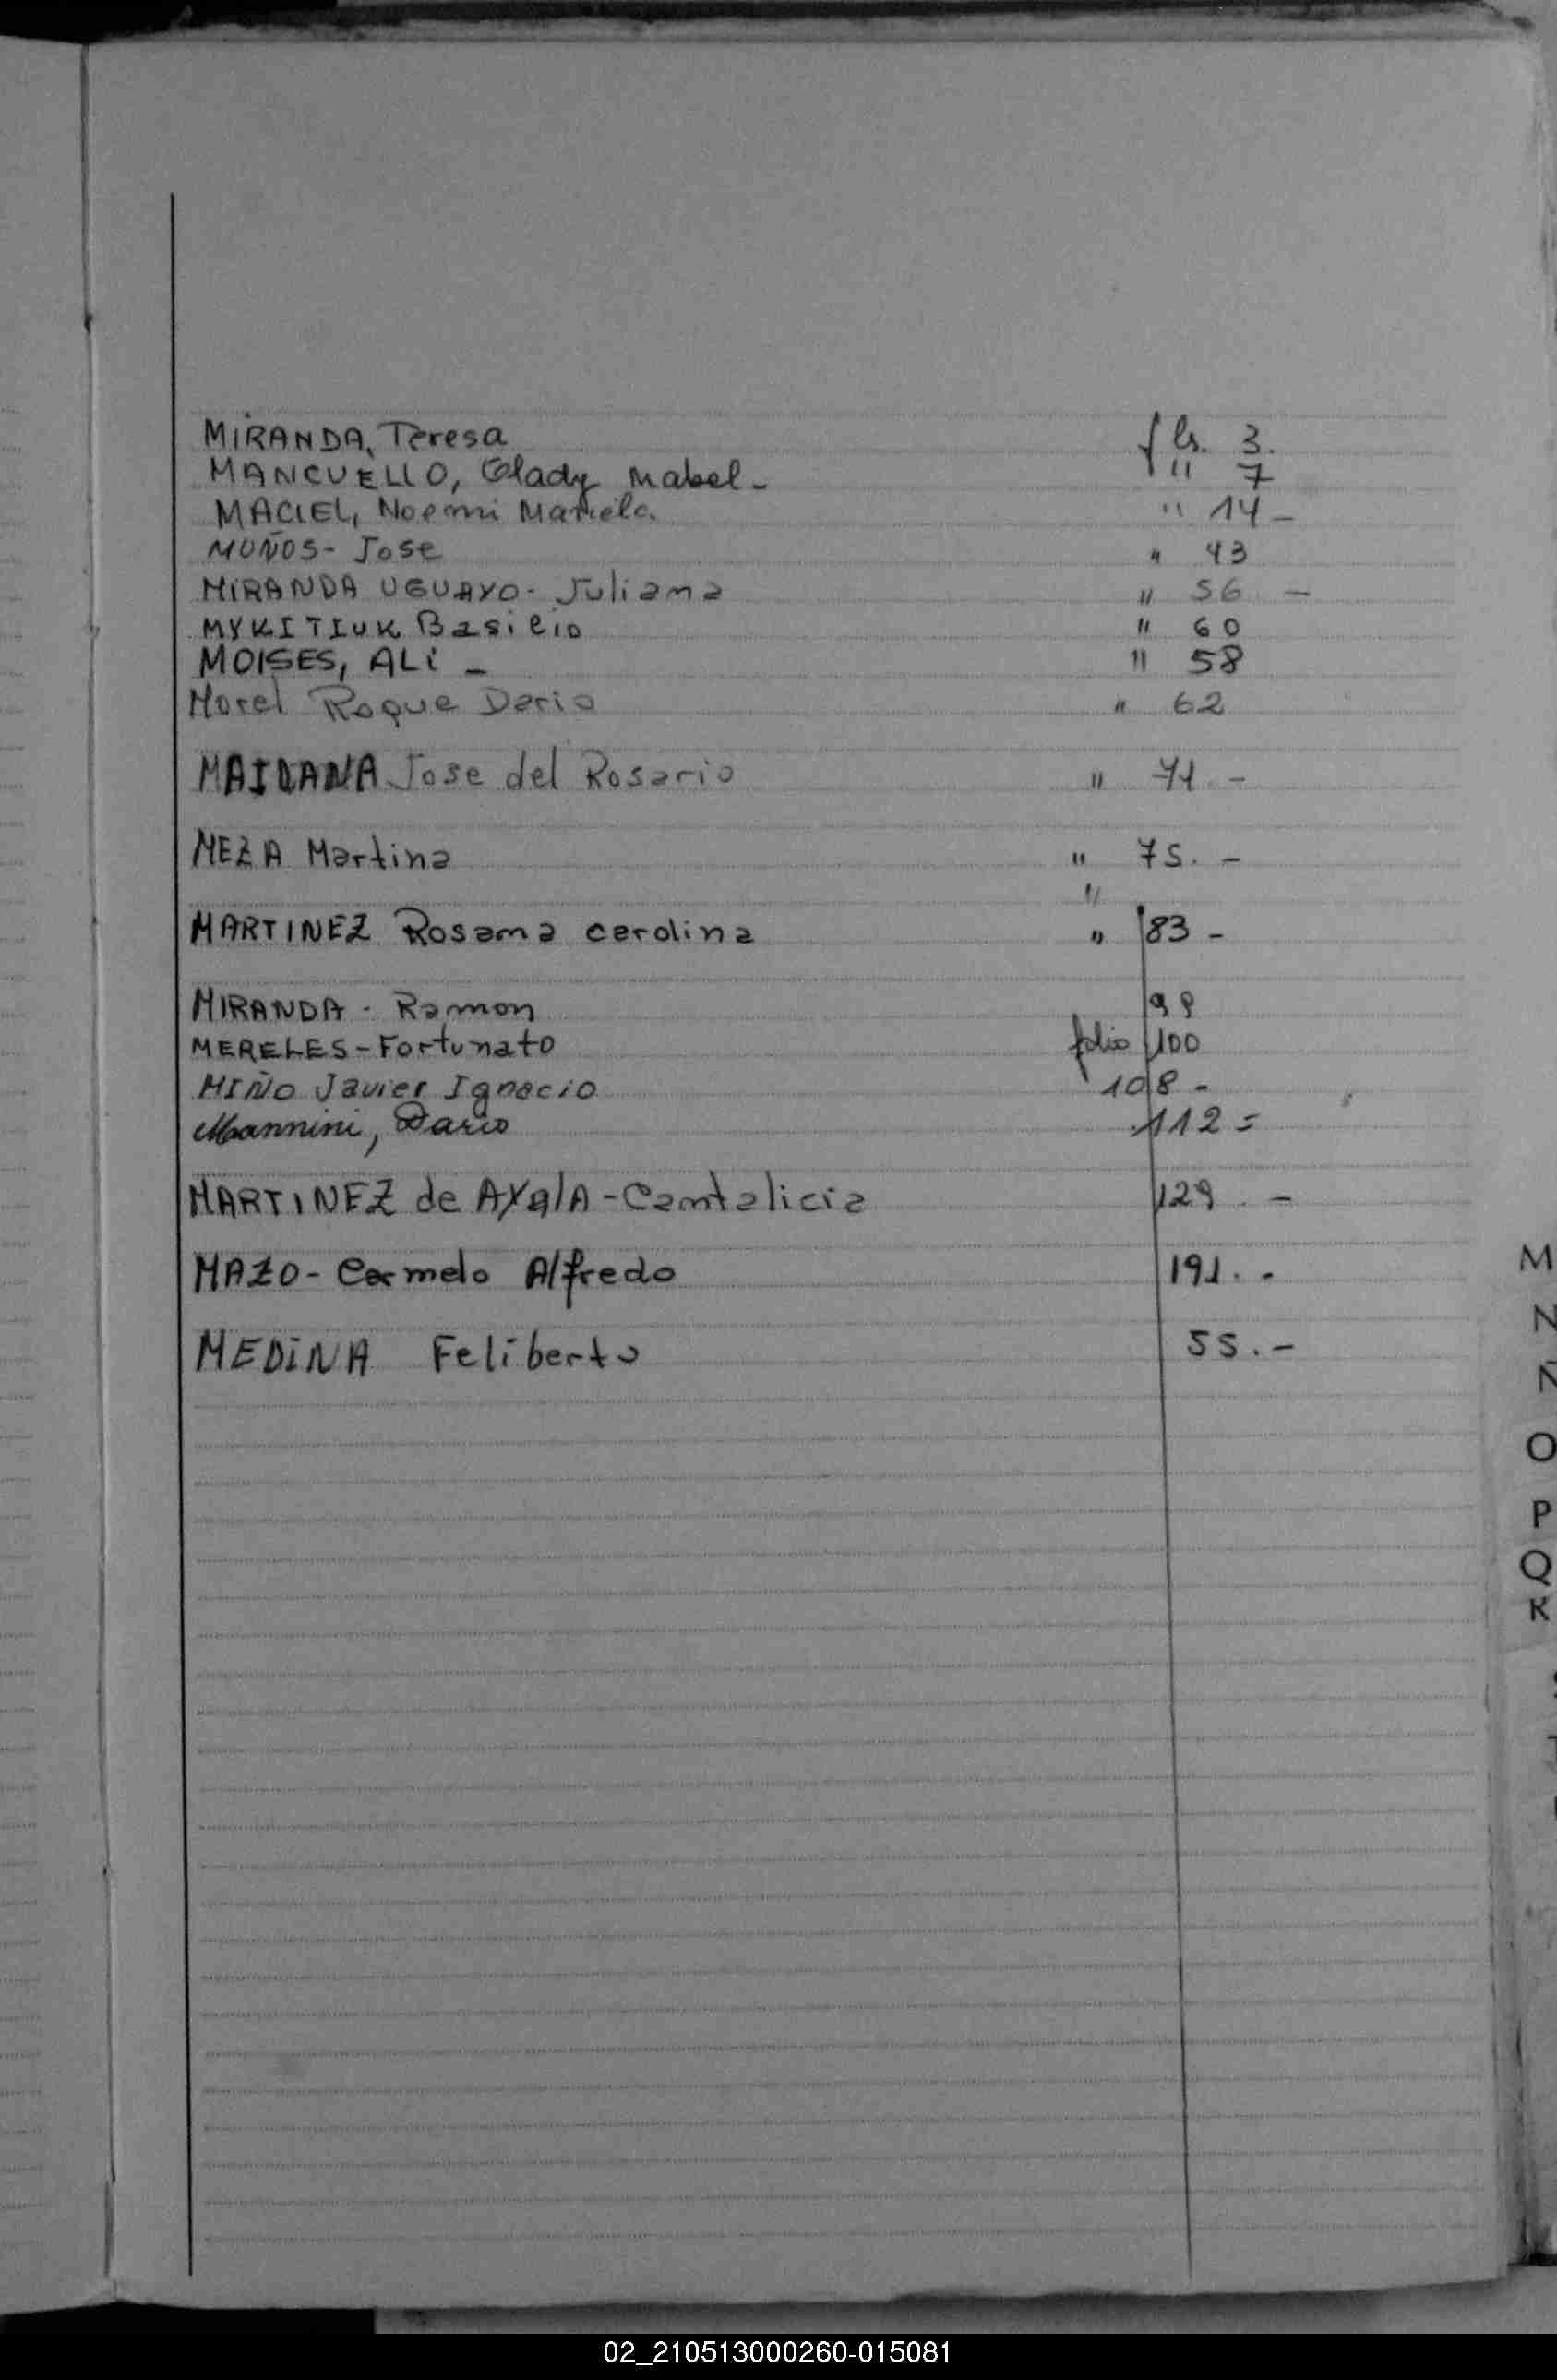 MIRANDA, Teresa fls. 3.
MANCUELLO, Glady Mabel - " 7
MACIEL, Noemi Mariela. " 14 -
MUÑOS - Jose " 43
MIRANDA UGUAYO - Juliana " 56 -
MYKITIUK Basilio " 60
MOISES, ALi - " 58
Morel Roque Dario " 62
MAIDANA Jose del Rosario " 71 -
MEZA Martina " 75. -
"
MARTINEZ Rosana carolina " 83 -
MIRANDA - Ramon 99
MERELES - Fortunato folio 100
MIÑO Javier Ignacio 108 -
Mannini, Dario 112 =
MARTINEZ de AYalA - Cantalicia 129 . -
MAZO - Carmelo Alfredo 191. -
MEDiNA Feliberto 55. -
M
N
Ñ
O
P
Q
R
02_210513000260-015081